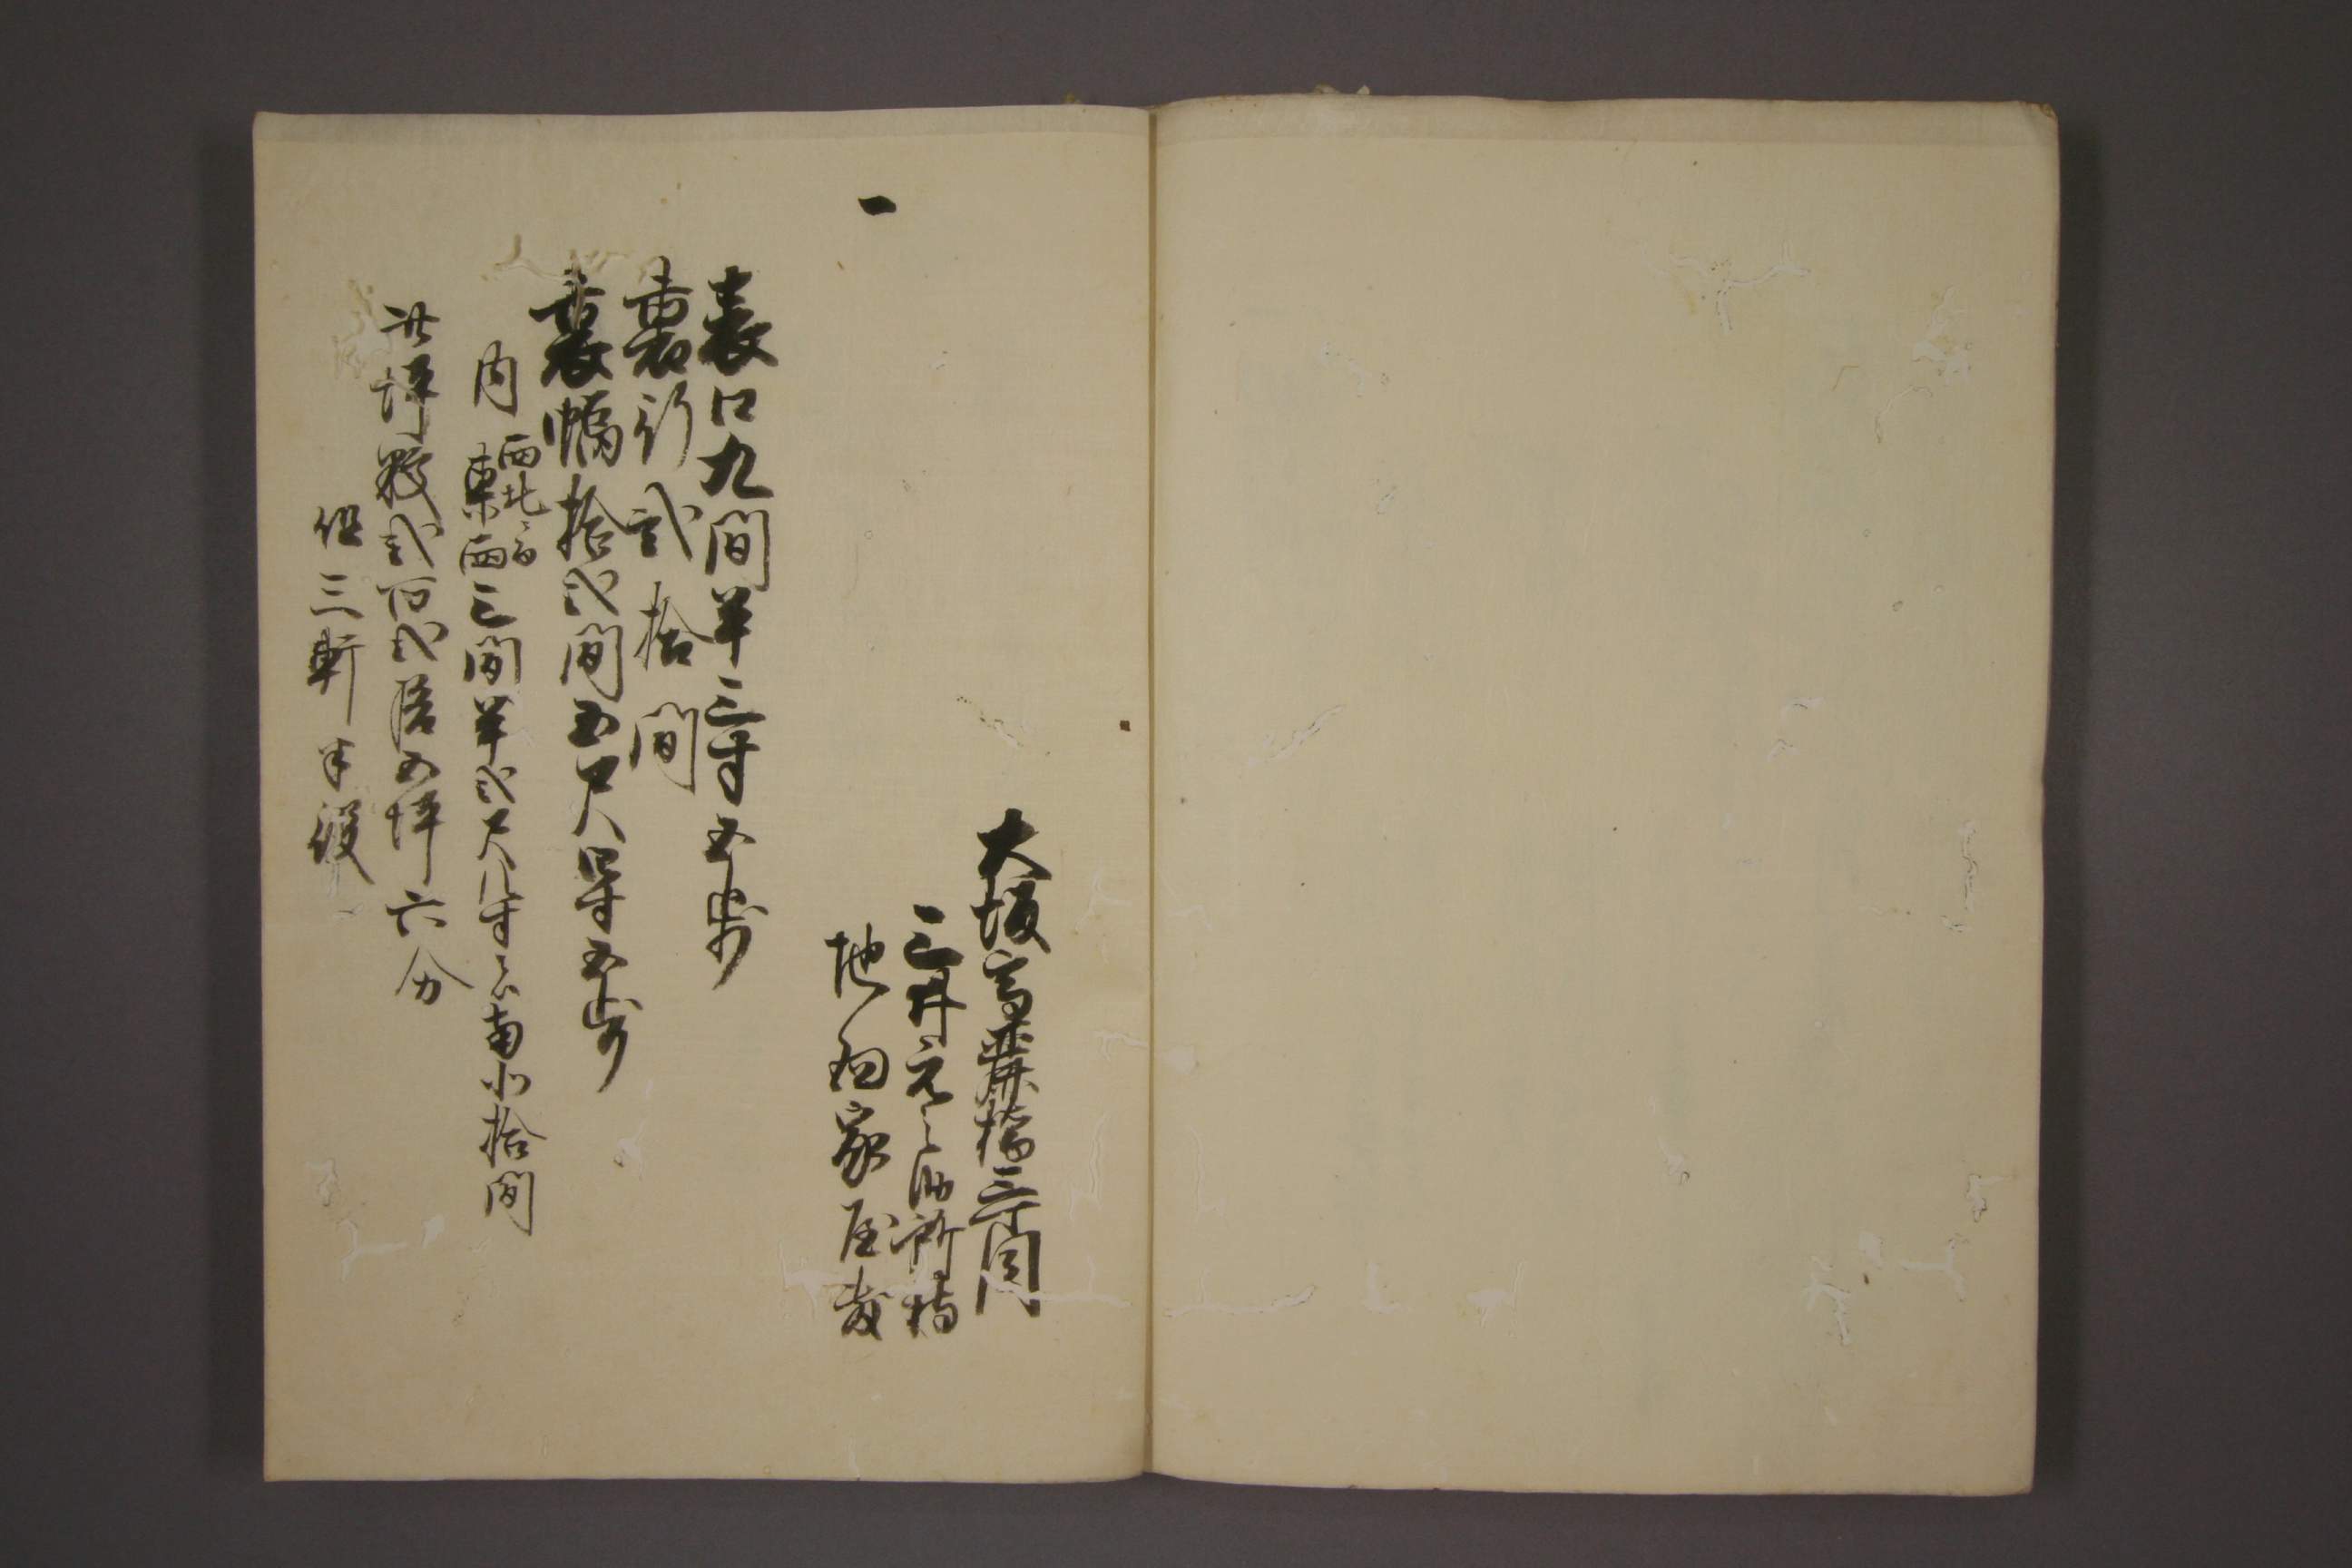 一
大坂高麗橋三丁目
三井元之助所持
地面家屋敷
表口九間半三寸五歩
裏行弐拾間
裏幅拾弐間五尺四寸五歩
内
西北ニ而
東西三間半弐尺八寸ニ南北拾間
此坪数弐百弐拾五坪六分
但三軒半役